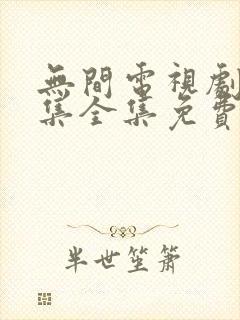 無間電視劇
集全集免費
半世笙簫